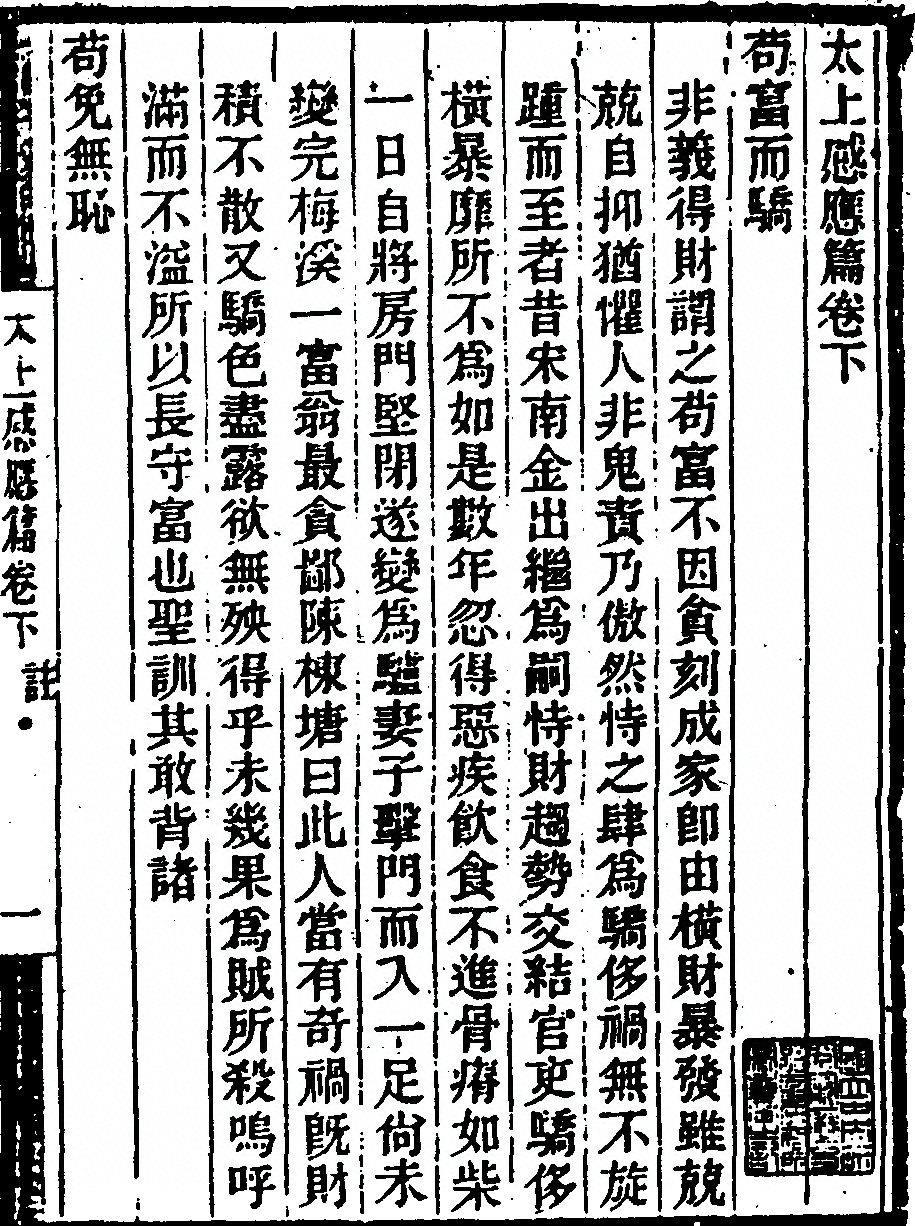 太上感應篇卷下
苟富而驕
非義得財謂之苟富不因貪刻成家卽由橫財暴發雖兢
兢自抑猶懼人非鬼責乃傲然恃之肆爲驕侈禍無不旋
踵而至者昔宋南金出繼爲嗣恃財趨勢交結官吏驕侈
橫暴靡所不爲如是數年忽得惡疾飮食不進骨瘠如柴
一日自將房門堅閉遂變爲驢妻子擊門而入一足尙未
變完梅溪一富翁最貪鄙陳棟塘曰此人當有奇禍旣財
積不散又驕色盡露欲無殃得乎未幾果爲賊所殺嗚呼
滿而不溢所以長守富也聖訓其敢背諸
苟免無恥
太上感應篇卷下 註 一